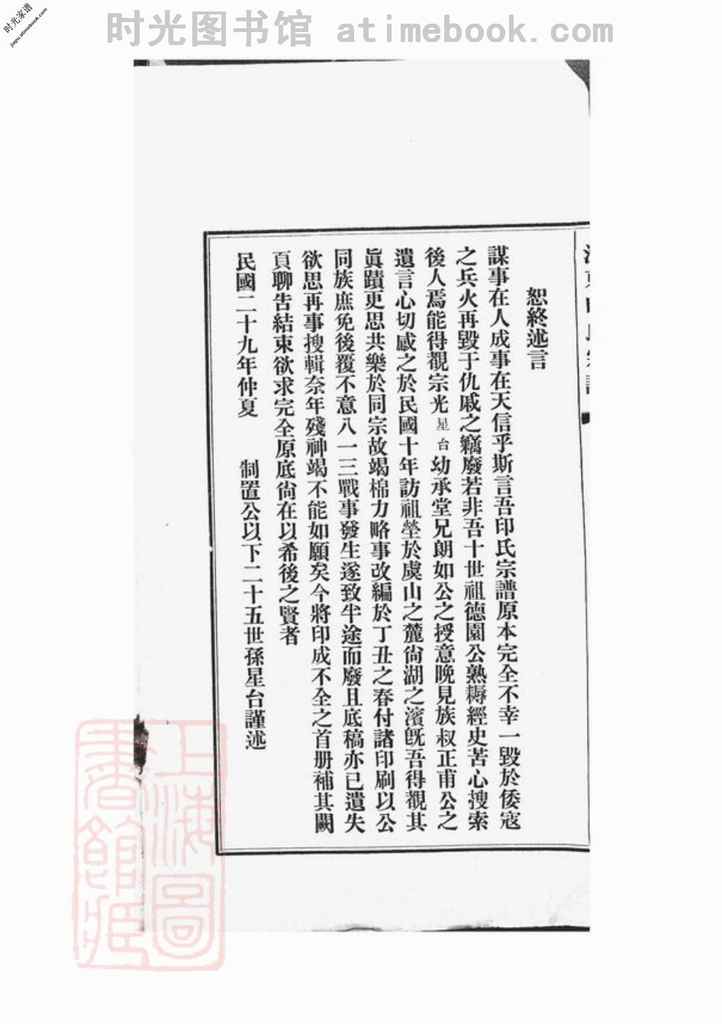 时光图书馆 atimebook.com
时光家谱
jiapu.atimebook.com
恕終述言
謀事在人成事在天信乎斯言吾印氏宗譜原本完全不幸一毀於倭寇
之兵火再毀于仇戚之竊廢若非吾十世祖德園公熟耨經史苦心搜索
後人焉能得觀宗光星台幼承堂兄朗如公之授意晚見族叔正甫公之
遺言心切感之於民國十年訪祖塋於虞山之麓尙湖之濱旣吾得觀其
眞蹟更思共樂於同宗故竭棉力略事改編於丁丑之春付諸印刷以公
同族庶免後覆不意八一三戰事發生遂致半途而廢且底稿亦已遺失
欲思再事搜輯奈年殘神竭不能如願矣今將印成不全之首册補其闕
頁聊告結束欲求完全原底尙在以希後之賢者
民國二十九年仲夏 制置公以下二十五世孫星台謹述
上海圖書館藏